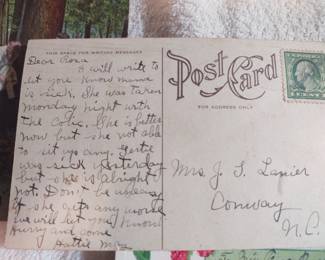 THIS SPACE FOR WRITING MESSAGES
Post Card
FOR ADDRESS ONLY
Dear Rosa
I will write to
let you know mama
is sick, She was taken
monday night with
the Colic, She is better
now but she not able
to sit up any. Gertie
was sick yesterday
but she is alright
not. Don't be uneasy
if she gets any worse
we will let you know
Hurry and come
Hattie
Mrs J. L. Lanier
Conway
N.C.